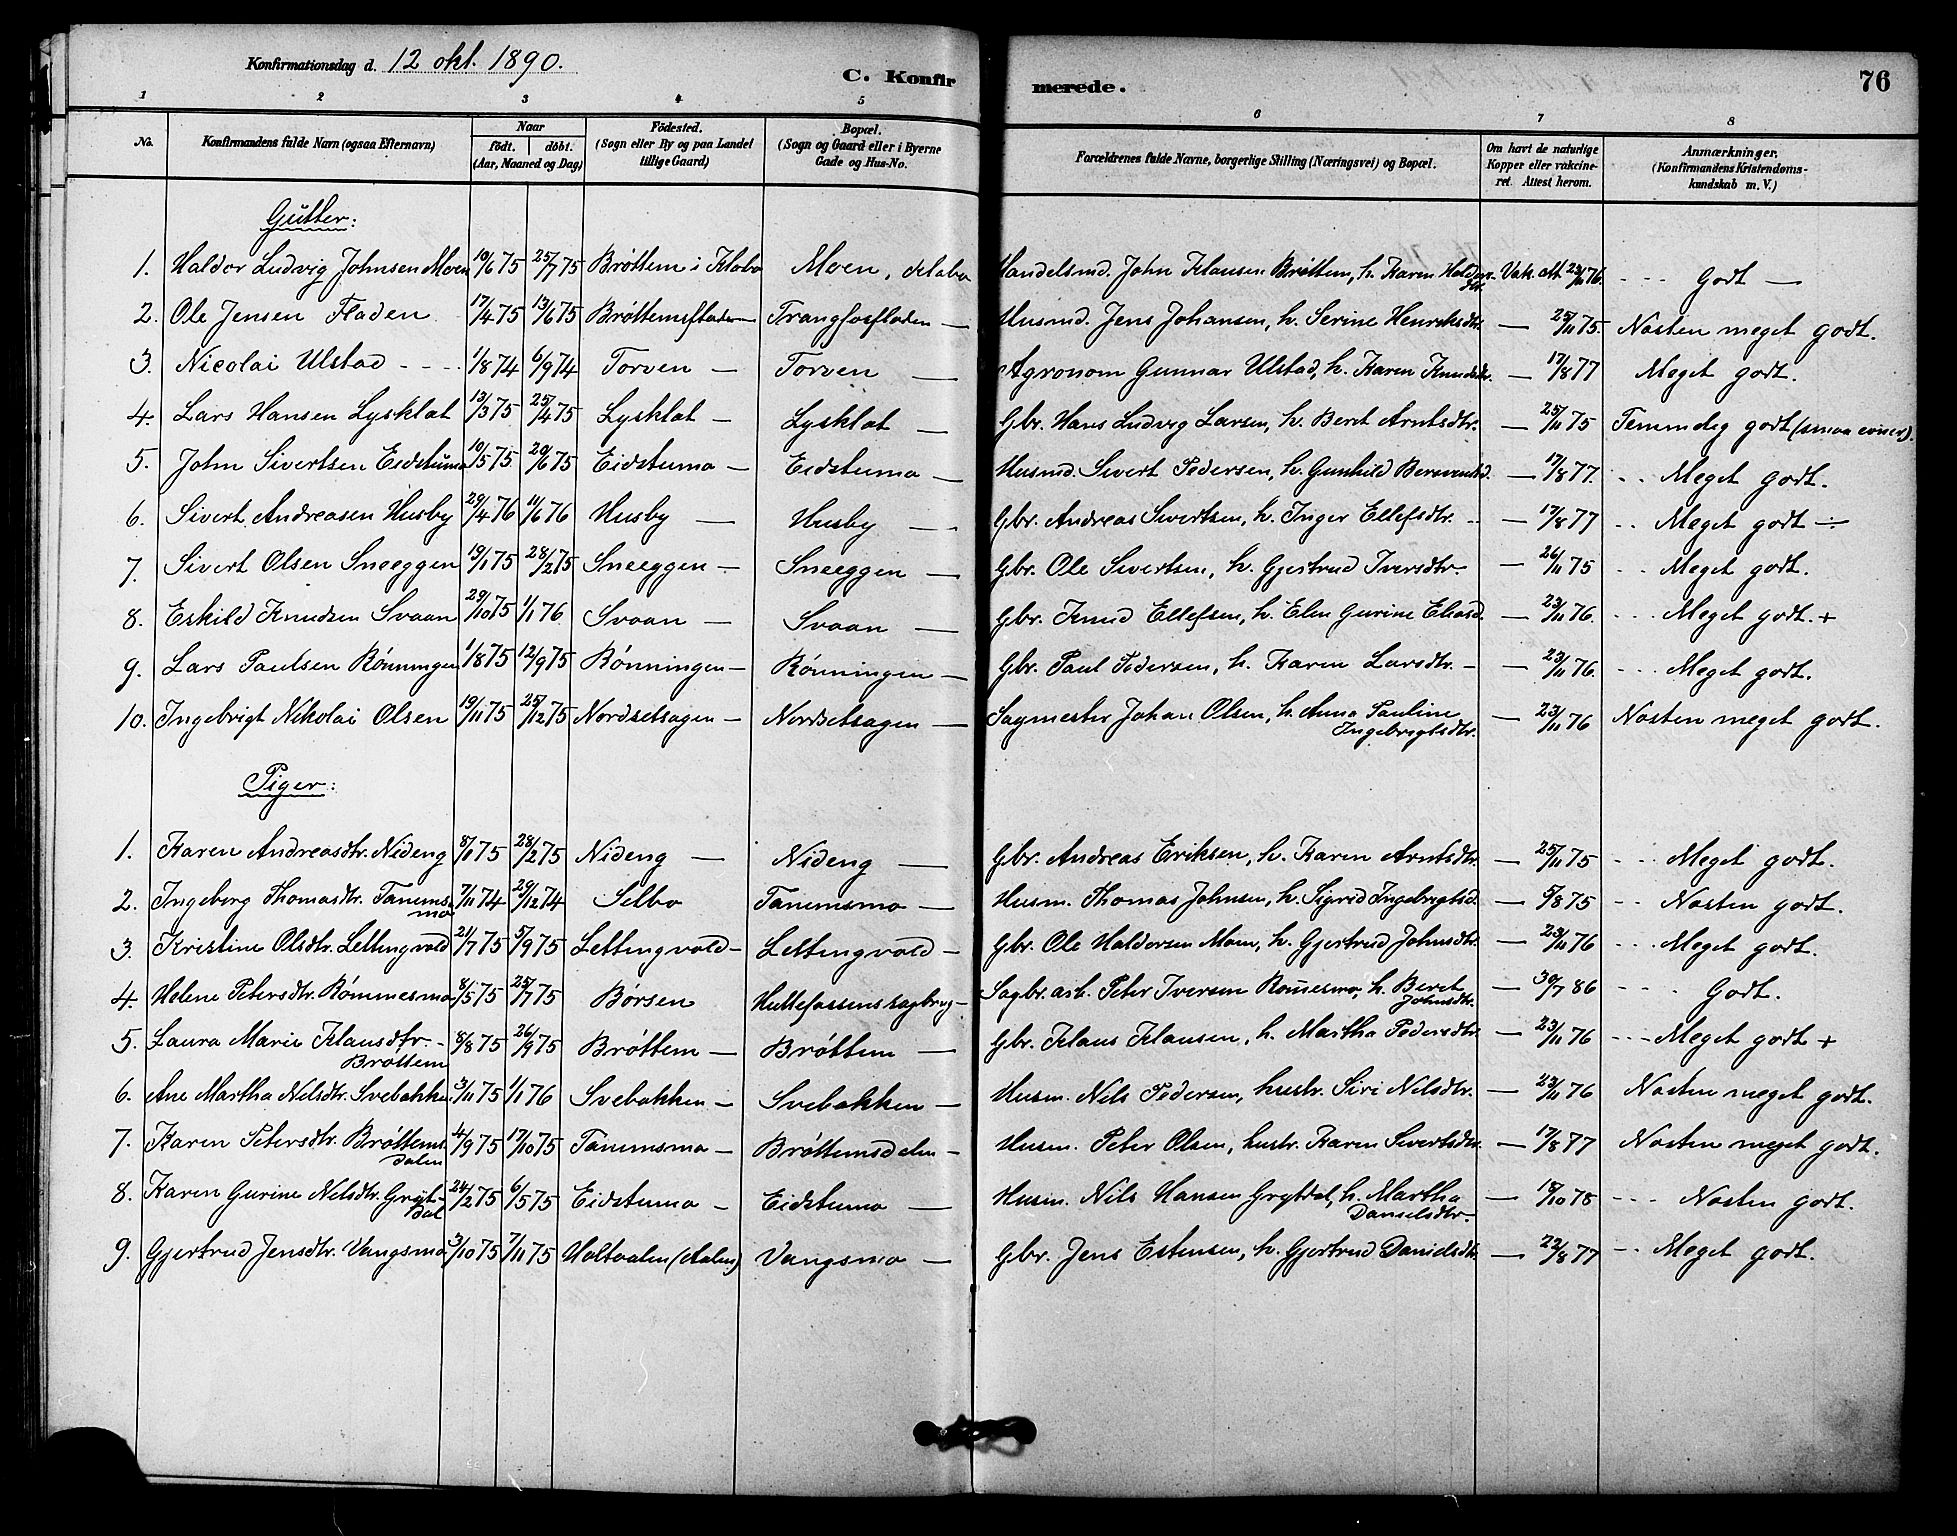 Konfirmationsdag d. 12 okt. 1890.
C. Konfirmerede.
76
1 2 3 4 5 6 7 8
No.
Konfirmandens fulde Navn (ogsaa Efternavn)
Naar
födt. döbt.
(Aar, Maaned og Dag)
Födested.
(Sogn eller By og paa Landet
tillige Gaard)
Bopæl.
(Sogn og Gaard eller i Byerne
Gade og Hus-No.
Forældrenes fulde Navne, borgerlige Stilling (Næringsvei) og Bopæl.
Om havt de naturlige
Kopper eller vakcine-
ret. Attest herom.
Anmærkninger.
(Konfirmandens Kristendoms-
kundskab m. V.)
Gutter:
1. Haldor Ludvig Johnsen Moen 10/6 75 25/7 75 Brøttem i Klæbo Moen, Klæbo Handelsmd. John Klausen Brøttem, h. Karen Haldorsdtr. Vak. Att. 23/11 76. - - - Godt —
2. Ole Jensen Fladen 17/4 75 13/6 75 Brøttemsfladen — Trangfosfladen — Husmd. Jens Johansen, h. Serine Henriksdtr. — 25/11 75. Næsten meget godt.
3. Nicolai Ulstad - - - 1/8 74 6/9 74 Torven — Torven — Agronom Gunnar Ulstad, h. Karen Knudsdtr. — 17/8 77 Meget godt.
4. Lars Hansen Lysklæt 13/3 75 25/4 75 Lysklæt — Lysklæt — Gbr. Hans Ludvig Larsen, h. Beret Arntsdtr. — 25/11 75 Temmelig godt (smaa evner).
5. John Sivertsen Eidstumo 10/5 75 20/6 75 Eidstumo — Eidstumo — Husmd. Sivert Pedersen, h. Gunhild — 17/8 77. - - Meget godt.
6. Sivert Andreasen Husby 29/4 76 11/6 76 Husby — Husby — Gbr. Andreas Sivertsen, h. Inger Ellefsdtr. - - — 17/8 77 - - Meget godt ÷
7. Sivert Olsen Sneeggen 19/1 75 28/2 75 Sneeggen — Sneeggen — Gbr. Ole Sivertsen, h. Gjertrud Iversdtr. — 26/11 75 - - Meget godt.
8. Eskild Knudsen Svaan 29/10 75 1/1 76. Svaan — Svaan — Gbr. Knud Ellefsen, h. Elen Gurine Eliasd. — 23/11 76. - - Meget godt. +
9. Lars Paulsen Rønningen 1/8 75 12/9 75 Rønningen — Rønningen — Gbr. Paul Pedersen, h. Karen Larsdtr. - — 23/11 76. - - - Meget godt.
10. Ingebrigt Nikolai Olsen 19/11 75 25/12 75 Nordsetsagen — Nordsetsagen — Sagmester Johan Olsen, h. Anna Pauline
Ingebrigtsdtr. — 23/11 76 Næsten meget godt.
Piger:
1. Karen Andreasdtr. Nideng 8/1 75 28/2 75 Nideng — Nideng — Gbr. Andreas Eriksen, h. Karen Arntsdtr. — 25/11 75 - - - Meget godt.
2. Ingeborg Thomasdtr. Tanems-
mo 7/11 74 29/12 74 Selbo Tanemsmo — Husm. Thomas Johnsen, h. Sigrid Ingebrigtsd. — 5/8 75 - - Næsten godt.
3. Kristine Olsdtr. Lettingvold 21/7 75 5/9 75 Lettingvold — Lettingvold — Gbr. Ole Haldorsen Moen, h. Gjertrud Johnsdtr. — 23/11 76 - - - Meget godt.
4. Helene Petersdtr. Rømmesmo 8/5 75 25/7 75 Børsen Huttefossens sagbrug — Sagbr. arb. Peter Iversen Rømesmo, h. Beret
Johnsdtr. — 30/7 86 - - - - Godt.
5. Laura Marie Klausdtr. -
Brøttem 8/8 75 26/9 75 Brøttem — Brøttem — Gbr. Klaus Klausen, h. Martha Pedersdtr. — 23/11 76 - - - Meget godt +
6. Ane Martha Nilsdtr. Svebakken 3/11 75 1/1 76 Svebakken — Svebakken — Husm. Nils Pedersen, hustr. Siri Nilsdtr. — 23/11 76 Næsten meget godt.
7. Karen Petersdtr. Brøttems-
dalen 4/9 75 17/10 75 Tanemsmo — Brøttemsdalen — Husm. Peter Olsen, hustr. Karen Sivertsdtr. — 17/8 77 Næsten meget godt.
8. Karen Gurine Nilsdtr. Gryt-
dal 24/2 75 6/5 75 Eidstumo — Eidstumo — Husm. Nils Hansen Grytdal, h. Martha
Danielsdtr. — 18/10 78 - - - Næsten godt.
9. Gjertrud Jensdtr. Vangsmo 3/10 75 7/11 75 Holtaalen (Aalen) Vangsmo — Gbr. Jens Estensen, h. Gjertrud Danielsdtr. — 22/8 77 - - Meget godt.